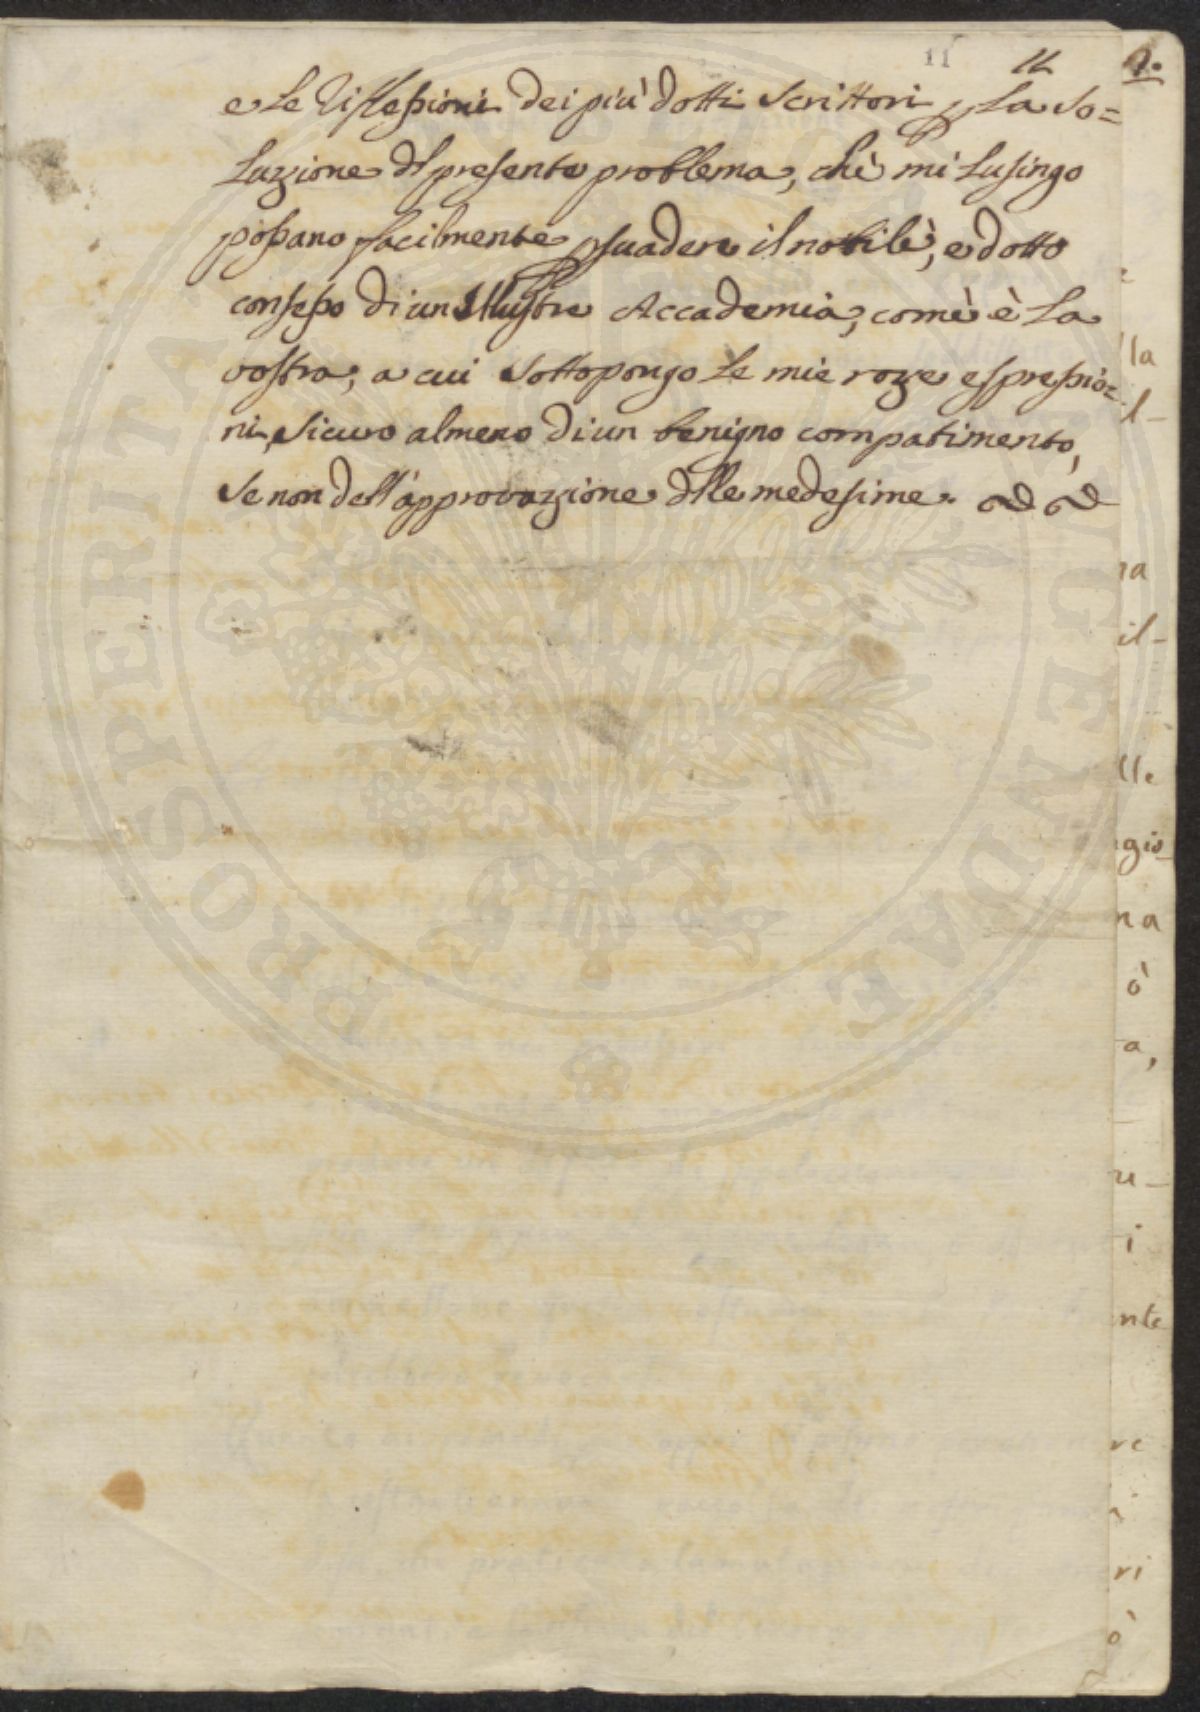 11 11 9.
e le riflessioni dei più dotti scrittori p la so=
luzione dl presente problema, chè mi lusingo
possano facilmente psuadere il nobile, e dotto
consesso di un Illustre Accademia, comè è la
vostra, a cui sottopongo le mie roze espressio=
ni, sicuro almeno di un benigno compatimento,
se non dell'approvazione dlle medesime.
lla
l-
na
il-
lle
gio_
na
ò
a,
u_
i
nte
re
ri
ò
PROSPERITATI AUGENDAE